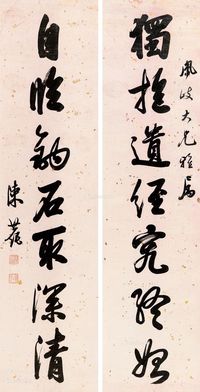 鳳岐大兄雅屬
獨抱遺經究終始
自臨釣石取深清
陳